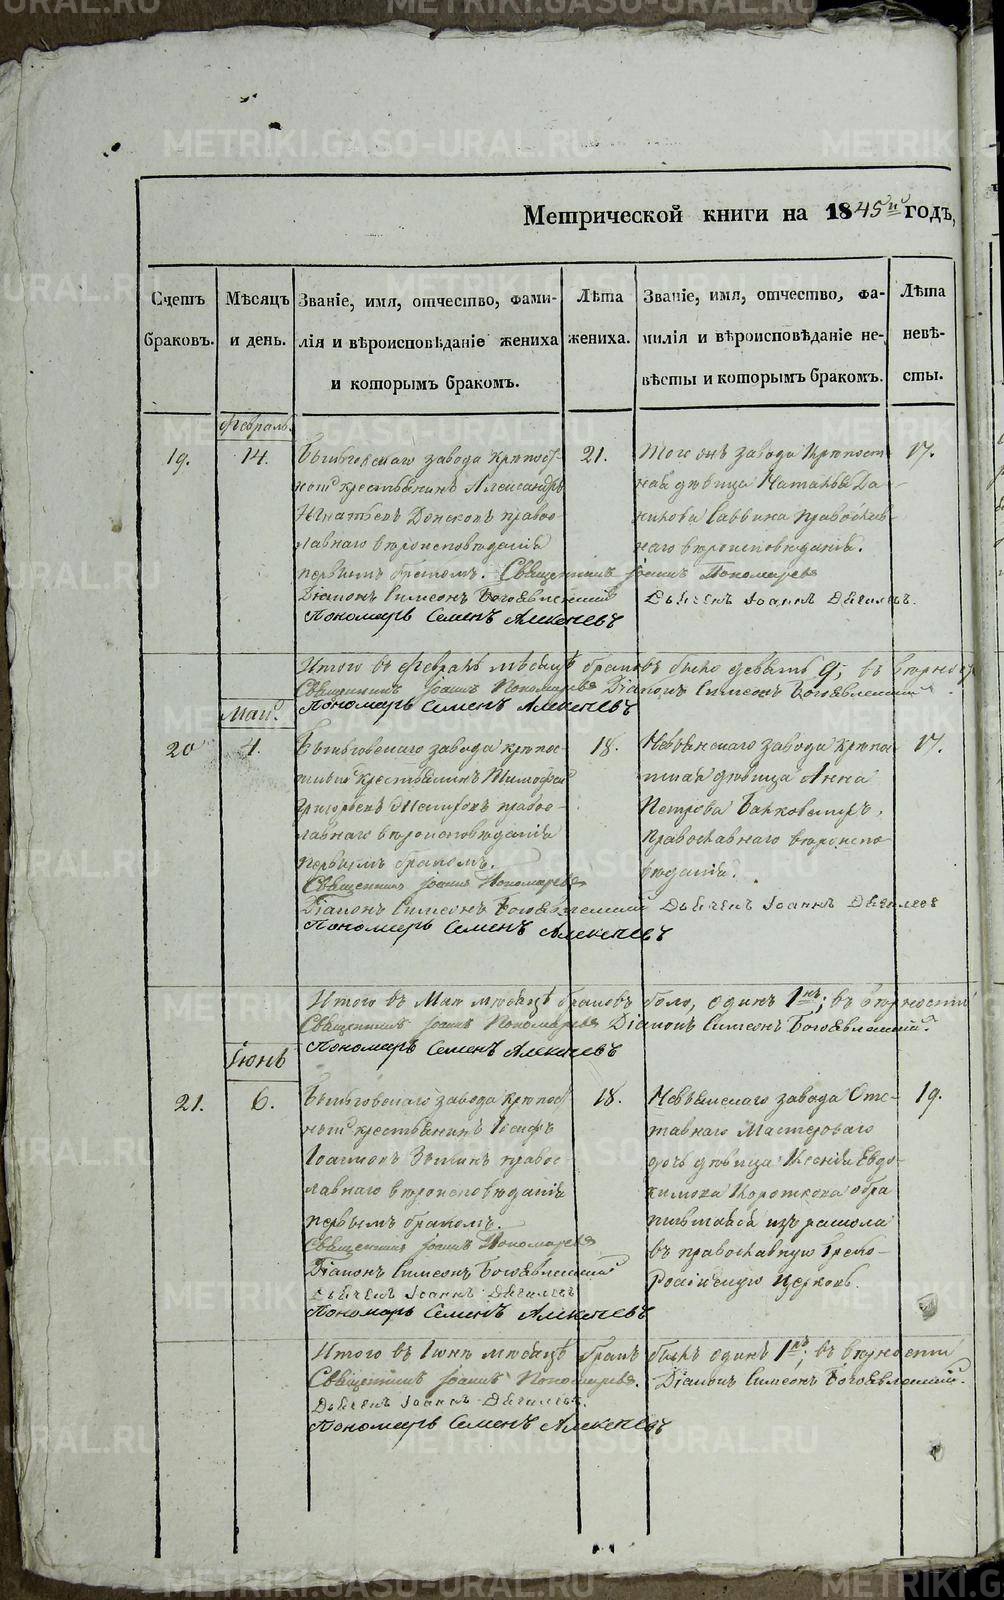 Метрической книги на 1845й годъ,
Счетъ браковъ.
Мѣсяцъ и день.
Званіе, имя, отчество, фами-
лія и вѣроисповѣданіе жениха
и которымъ бракомъ.
Лѣта жениха.
Званіе, имя, отчество, фа-
милія и вѣроисповѣданіе не-
вѣсты и которымъ бракомъ.
Лѣта невѣ-
сты.
Февраль
19.
14.
завода крѣпост-
ной крестьянинъ Александръ
Игнатьевъ Донсковъ право-
славнаго вѣроисповѣданія
первымъ бракомъ. Священникъ Іоаннъ Пономаревъ
Діаконъ Симеонъ Богоявленскій
Пономарь Семенъ Алексѣевъ
21.
Того жъ завода крѣпост
ная дѣвица Наталья Да-
нилова Саввина православ-
наго вѣроисповѣданія.
Дьячекъ Іоаннъ Дягилевъ.
17.
Итого въ Февралѣ мѣсяцѣ браковъ было девять 9; въ вѣрности
Священникъ Іоаннъ Пономаревъ Діаконъ Симеонъ Богоявленскій.
Пономарь Семенъ Алексѣевъ
Май.
20
4.
завода крѣпос-
тной крестьянинъ Тимофей
Григорьевъ право-
славнаго вѣроисповѣданія
первымъ бракомъ.
Священникъ Іоаннъ Пономаревъ
Діаконъ Симеонъ Богоявленскій Дьячекъ Іоаннъ Дягилевъ
Пономарь Семенъ Алексѣевъ
18.
Невьянскаго завода крѣпо-
стная дѣвица Анна
Петрова
православнаго вѣроиспо-
вѣданія.
17.
Итого въ Маѣ мѣсяцѣ браковъ было, одинъ 1нъ; въ вѣрности
Священникъ Іоаннъ Пономаревъ Діаконъ Симеонъ Богоявленскій.
Пономарь Семенъ Алексѣевъ
Іюнь
21.
6.
завода крѣпос
ной крестьянинъ Іосифъ
право-
славнаго вѣроисповѣданія
первымъ бракомъ.
Священникъ Іоаннъ Пономаревъ
Діаконъ Симеонъ Богоявленскій
Дьячекъ Іоаннъ Дягилевъ
Пономарь Семенъ Алексѣевъ
18.
Невьянскаго завода Отс-
тавнаго Мастероваго
дочь дѣвица Ксенія Евдо-
кимова Короткова обра
тившаяся изъ раскола
въ православную Греко-
Россійскую Церковь.
19.
Итого въ Іюнѣ мѣсяцѣ бракъ былъ одинъ 1нъ; въ вѣрности
Священникъ Іоаннъ Пономаревъ. Діаконъ Симеонъ Богоявленскій.
Дьячекъ Іоаннъ Дягилевъ.
Пономарь Семенъ Алексѣевъ
METRIKI.GASO-URAL.RU